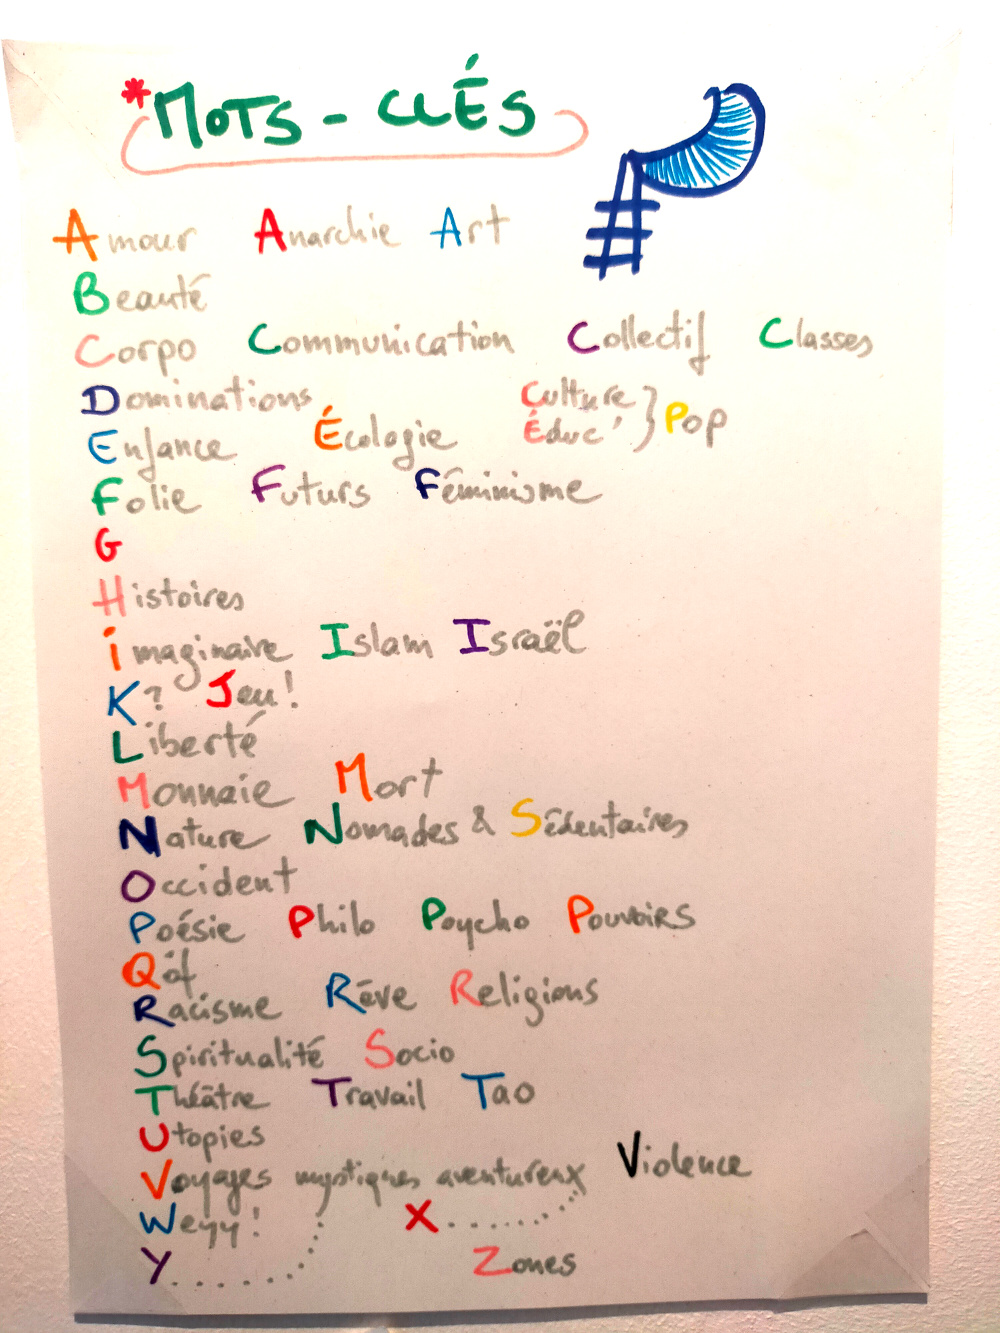 *MOTS-CLÉS
Amour Anarchie Art
Beauté
Corpo Communication Collectif Classes
Dominations Culture
Enfance Écologie Éduc' } Pop
Folie Futurs Féminisme
G
Histoires
imaginaire Islam Israël
K? Jeu!
Liberté
Monnaie Mort
Nature Nomades & Sédentaires
Occident
Poésie Philo Psycho Pouvoirs
Qôf
Racisme Rêve Religions
Spiritualité Socio
Théâtre Travail Tao
Utopies
Voyages mystiques aventureux Violence
Weyy! X
Y Zones